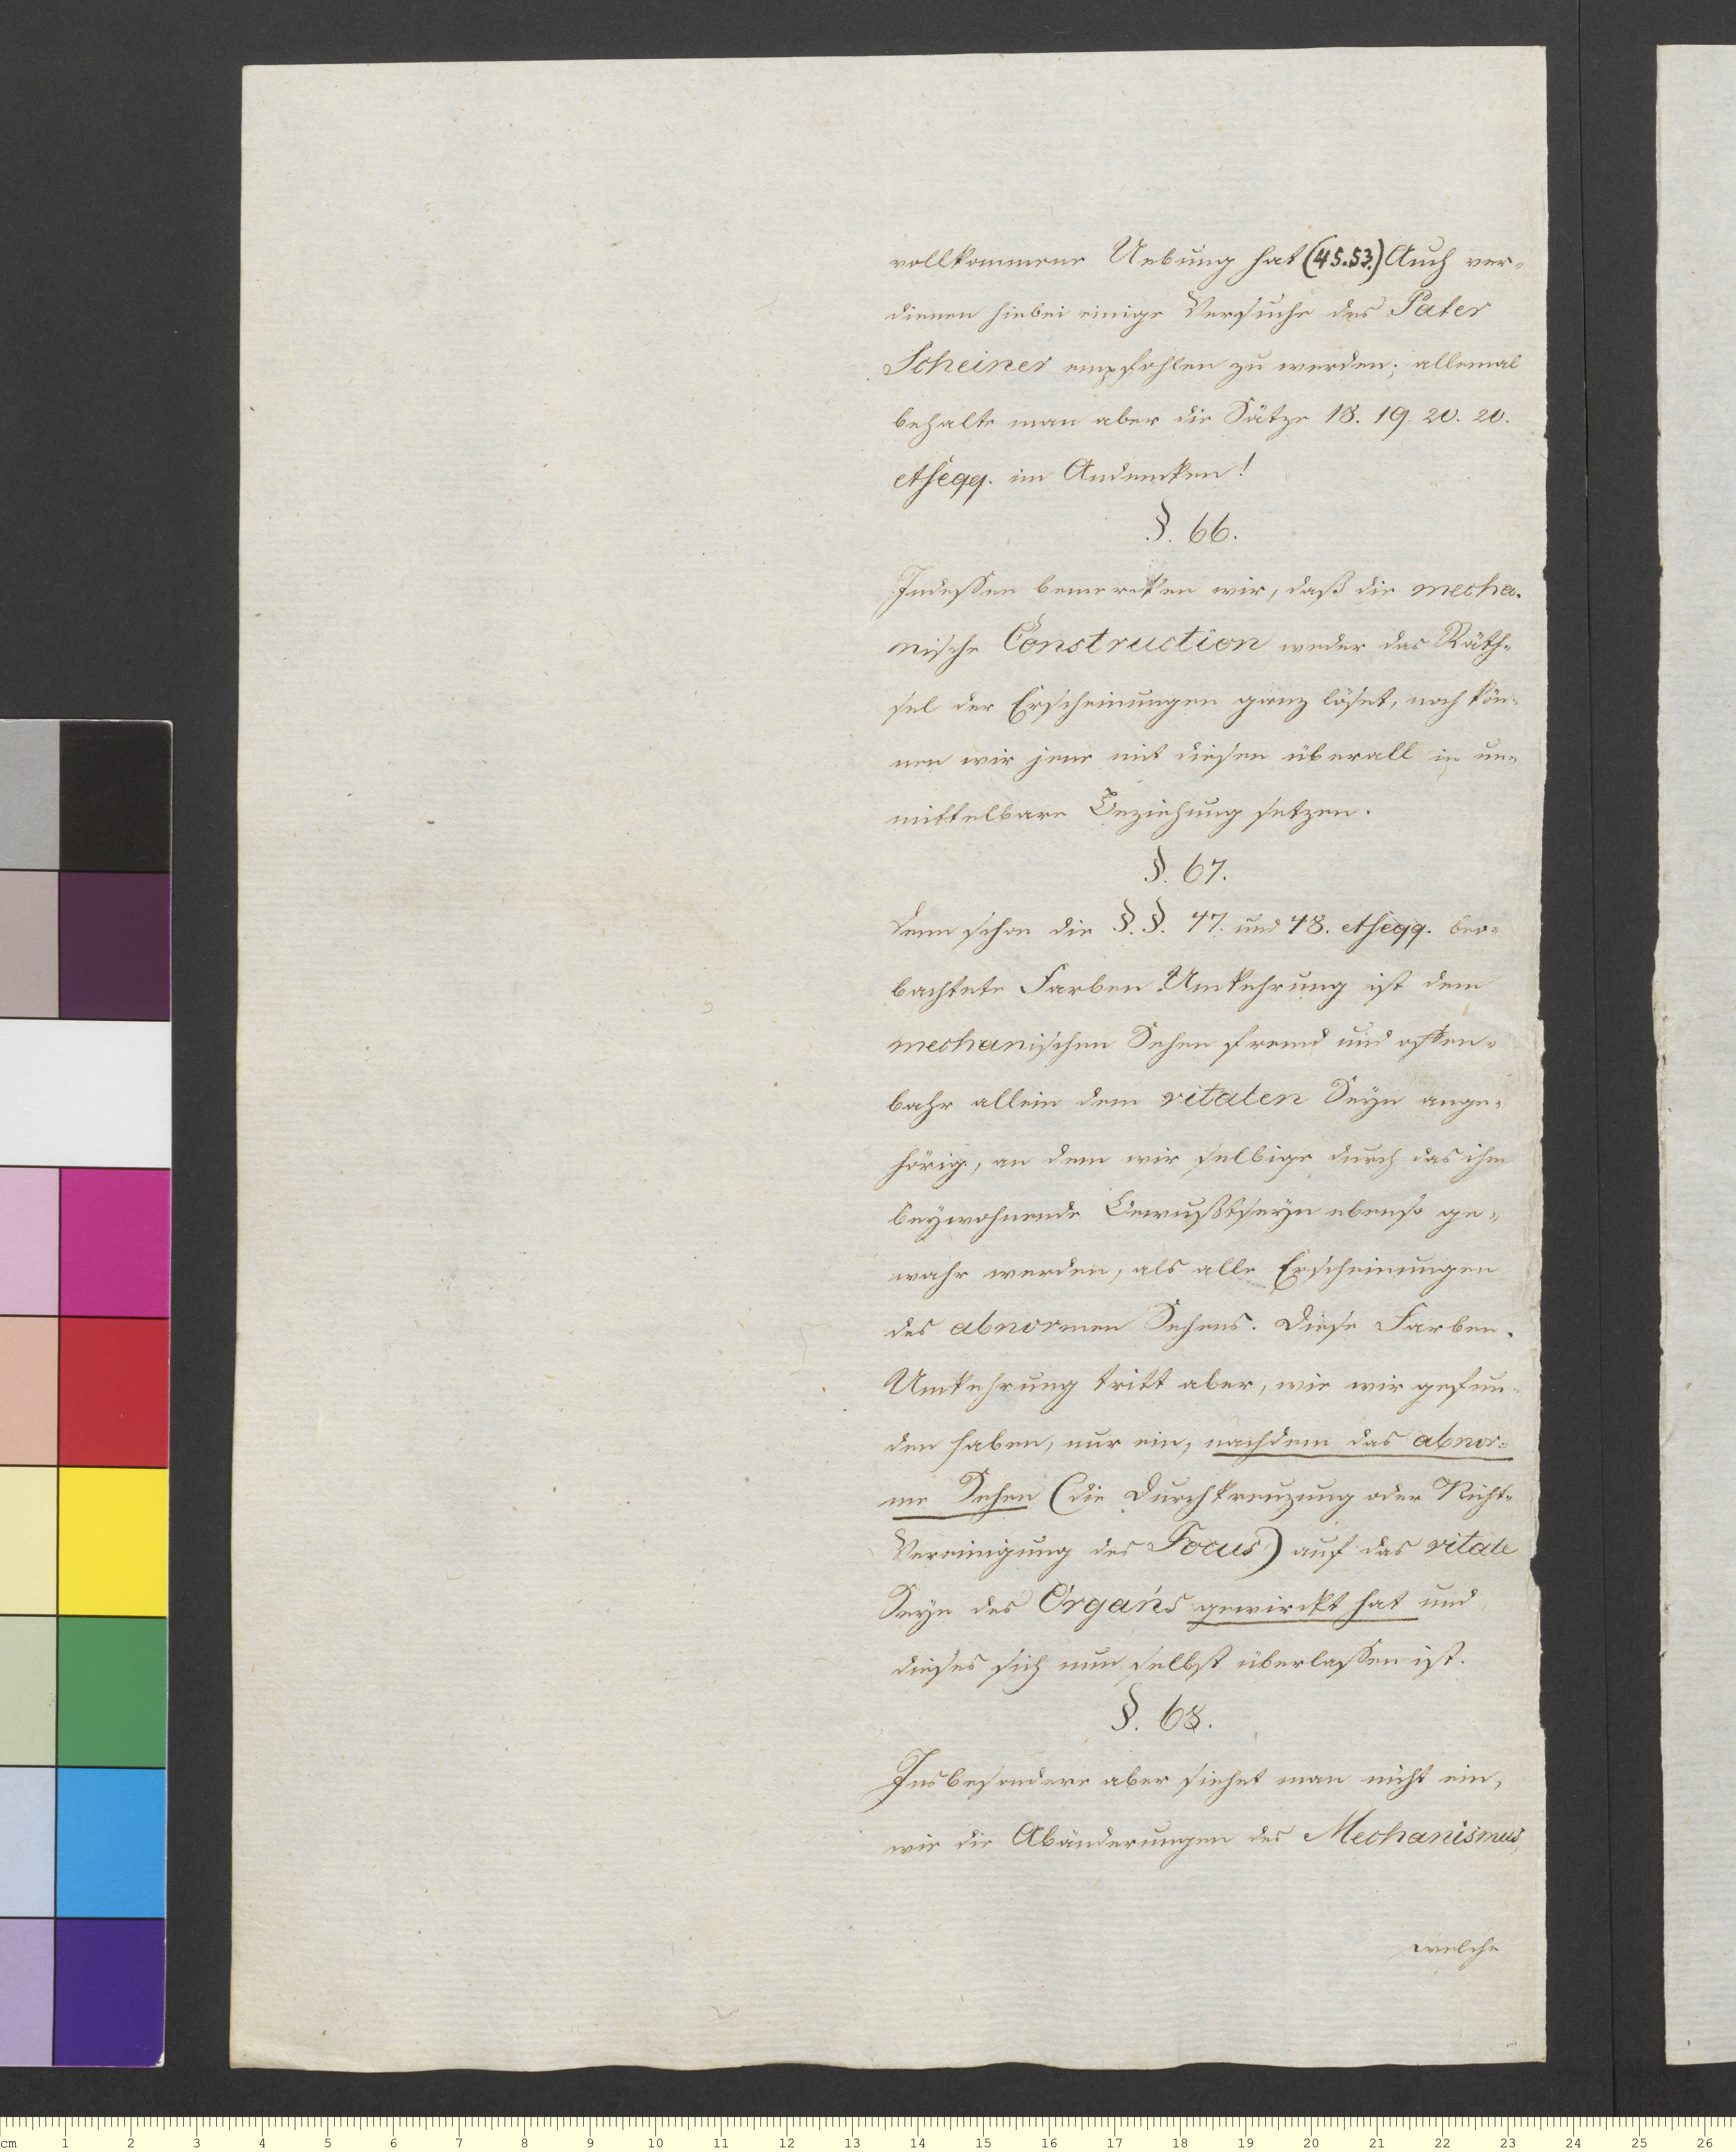 vollkommene Uebung hat (45.53.) Auch ver-
dienen hiebei einige Versuche des Pater
Scheiner empfohlen zu werden; allemal
behalte man aber die Sätze 18. 19. 20. 20.
etseqq. im Andencken!
§. 66.
Indessen bemercken wir, daß die mecha-
nische Construction weder das Räth-
sel der Erscheinungen ganz löset, noch kön-
nen wir jene mit diesen überall in un-
mittelbare Beziehung setzen.
§. 67.
Denn schon die §. §. 47. und 48. etseqq. beo-
bachtete Farben Umkehrung ist dem
mechanischen Sehen fremd und offen-
bahr allein dem vitalen Seyn ange-
hörig, an dem wir selbige durch das ihm
beywohnende Bewußtseyn ebenso ge-
wahr werden, als alle Erscheinungen
des abnormen Sehens. Diese Farben-
Umkehrung tritt aber, wie wir gefun-
den haben, nur ein, nachdem das abnor-
me Sehen (die Durchkreuzung oder Nicht-
Vereinigung des Focus) auf das vitale
Seyn des Organs gewirckt hat und
dieses sich nun selbst überlassen ist.
§. 68.
Insbesondere aber siehet man nicht ein,
wie die Abänderungen des Mechanismus,
welche
cm 1 2 3 4 5 6 7 8 9 10 11 12 13 14 15 16 17 18 19 20 21 22 23 24 25 26